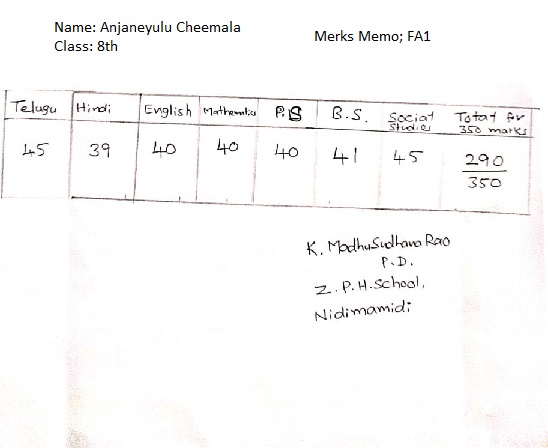 Name: Anjaneyulu Cheemala
Class: 8th
Merks Memo; FA1
Telugu Hindi English Mathematics P.S B.S. Social Studies Total for 350 marks
45 39 40 40 40 41 45 290/350
K. MadhuSudhana Rao
P.D.
Z.P.H.School,
Nidimamidi